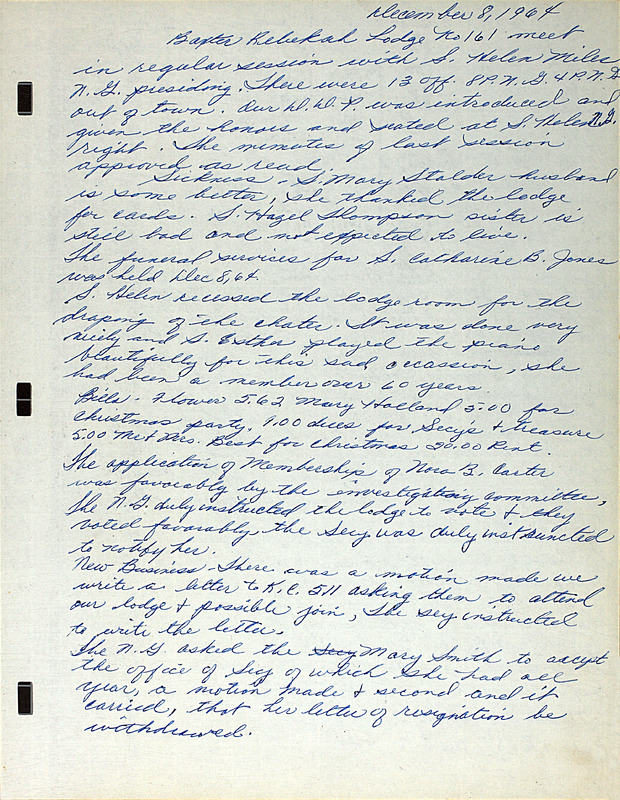 December 8, 1964
Baxter Rebekah Lodge No 161 meet
in regular session with S. Helen Miles
N. G. presiding. There were 13 off. 8 P. N. G. 4 P. N. G
out of town. Our D. D. P. was introduced and
given the honors and seated at S. Helen N.G.
right. The minutes of last session
approved as read.
Sickness - S. Mary Stalder husband
is some better, she thanked the lodge
for cards. S. Hazel Thompson sister is
still bad and not expected to live.
The funeral services for S. Catharine B. Jones
was held Dec 8, 64.
S. Helen recessed the lodge room for the
draping of the chater. It was done very
nicely and S. Esther played the piano
beautifully for this sad occassion, she
had been a member over 60 years.
Bills. Flower 5.62 Mary Holland 5.00 for
Christmas party. 9.00 dues for Secy's & treasure
5.00 Mr & Mrs. Best for Christmas 20.00 Rent.
The application of Membership of Nora B. Carter
was favorably by the investigating committee,
The N. G. duly instructed the lodge to vote & they
voted favorably, the Secy was duly instructed
to notify her.
New Business. There was a motion made we
write a letter to K. C. 511 asking them to attend
our lodge & possible join, The sey instructed
to write the letter.
The N. G. asked the Secy Mary Smith to accept
the office of Secy of which she had all
year, a motion made & second and it
carried, that her letter of resignation be
withdrawed.